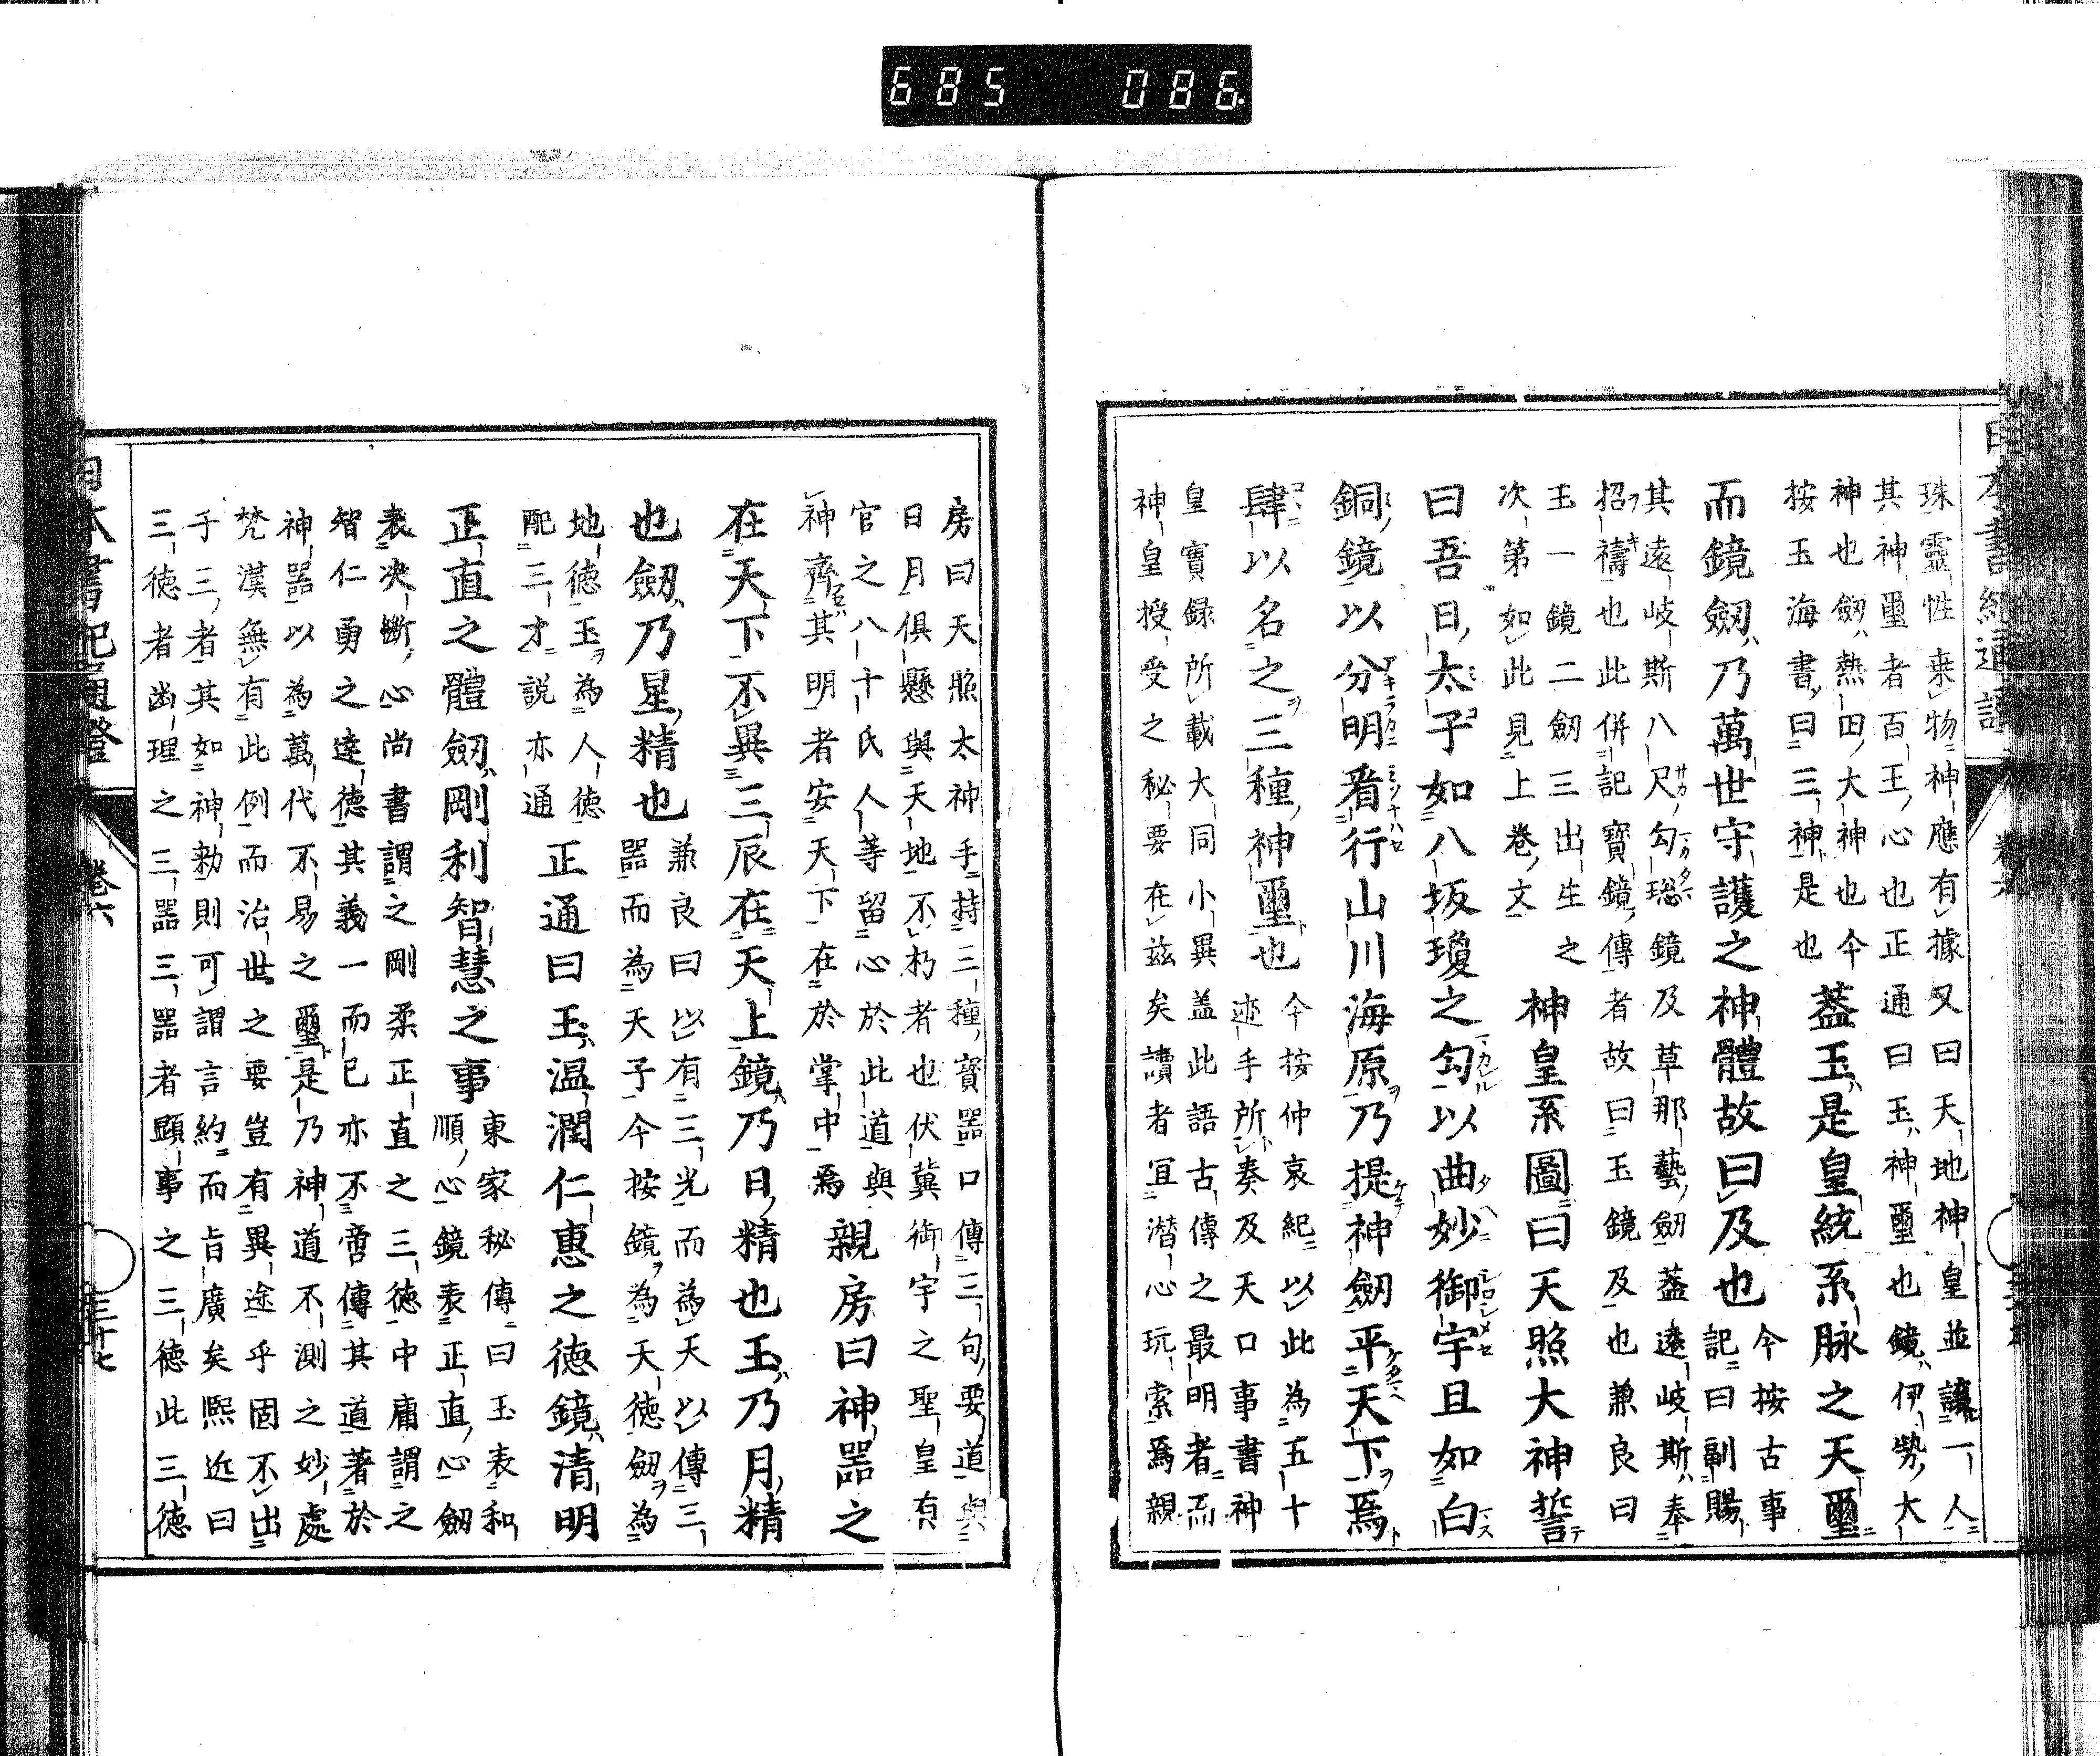 685 086
珠靈性来物神應有據又曰天地神皇並讓一人
其神璽者百王心也正通曰玉神璽也鏡伊勢大
神也劔熱田大神也今
按玉海書曰三神是也
葢玉是皇統系脉之天璽
而鏡劔乃萬世守護之神體故曰及也
今按古事
記曰副賜
其遠岐斯八尺勾璁鏡及草那藝劔葢遠岐斯奉
招禱也此併記寶鏡傳者故曰玉鏡及也兼良曰
玉一鏡二劔三出生之
次第如此見上卷文
神皇系圖曰天照大神誓
曰吾日太子如八坂瓊之勾以曲妙御宇且如白
銅鏡以分明看行山川海原乃提神劔平天下焉
肆以名之三種神璽也
今按仲哀紀以此為五十
迹手所奏及天口事書神
皇實録所載大同小異盖此語古傳之最明者而
神皇授受之秘要在玆矣讀者宜潜心玩索焉親
房曰天照太神手持三種寳器口傳三句要道與
日月俱懸與天地不朽者也伏冀御宇之聖皇有
官之八十氏人等留心於此道與
神齊其明者安天下在於掌中焉
親房曰神器之
在天下不異三辰在天上鏡乃日精也玉乃月精
也劔乃星精也
兼良曰以有三光而為天以傳三
器而為天子今按鏡為天徳劔為
地徳玉為人徳
配三才説亦通
正通曰玉温潤仁惠之徳鏡清明
正直之體劔剛利智慧之事
東家秘傳曰玉表和
順心鏡表正直心劔
表决断心尚書謂之剛柔正直之三徳中庸謂之
智仁勇之達徳其義一而已亦不啻傳其道著於
神器以為萬代不易之璽是乃神道不測之妙處
梵漢無有此例而治世之要豈有異途乎固不出
于三者其如神勅則可謂言約而旨廣矣熙近曰
三徳者幽理之三器三器者顕事之三徳此三徳
日本書紀通證
卷六
三十七